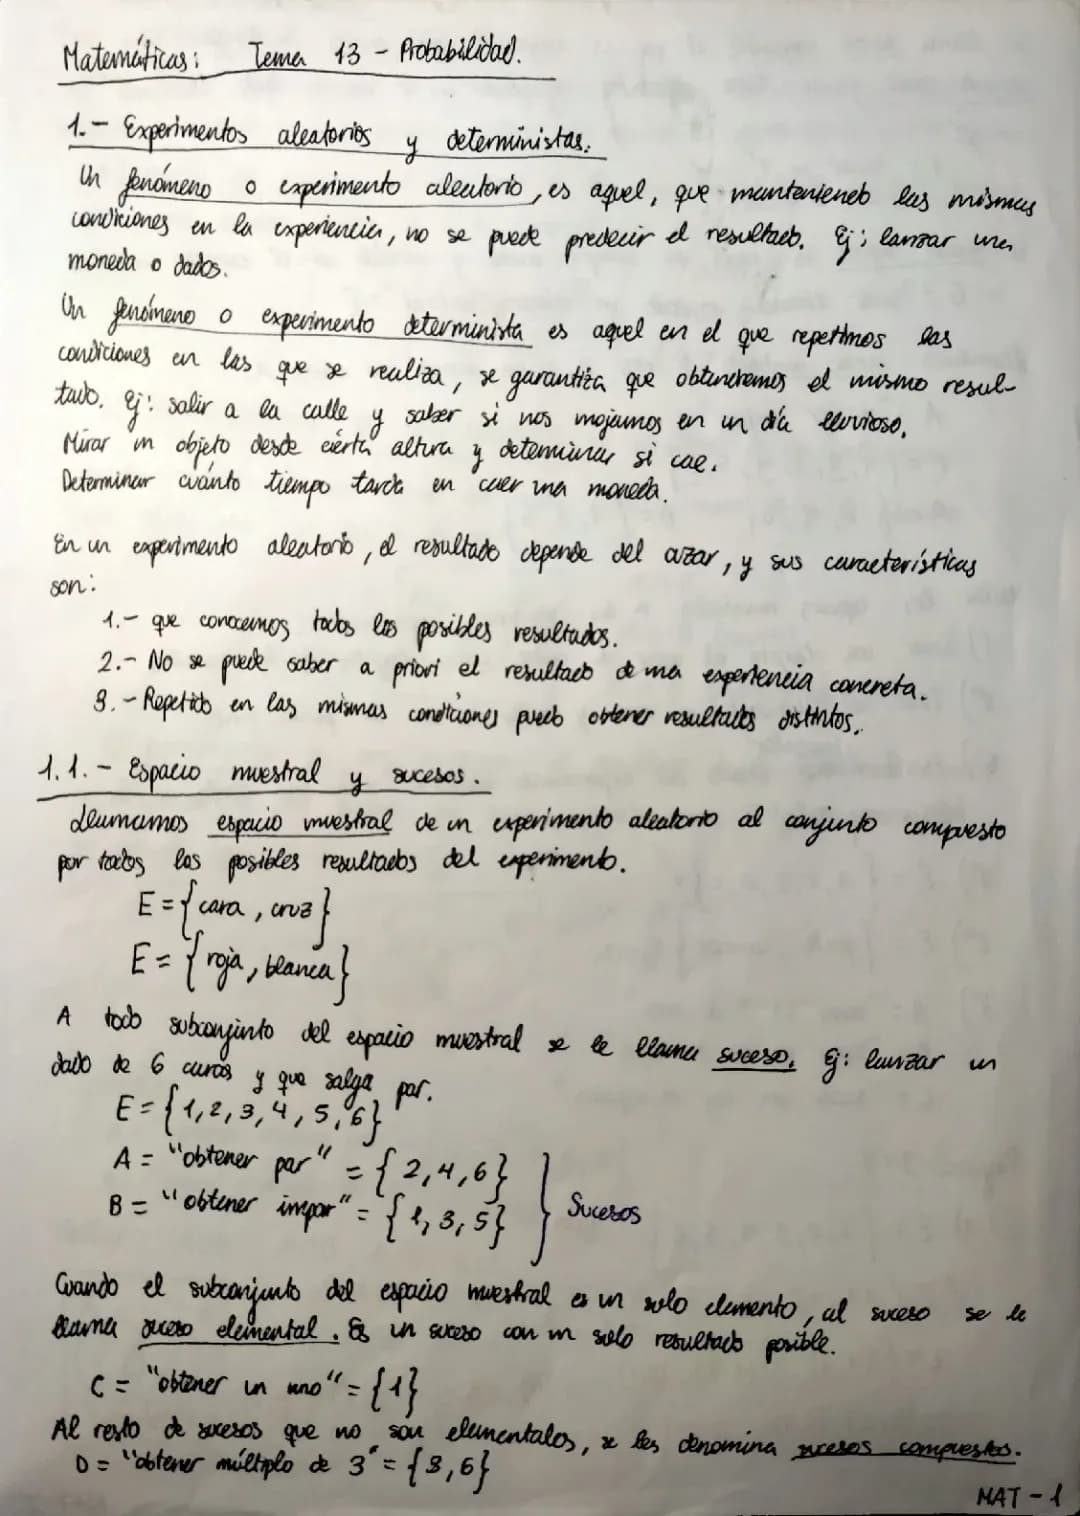 Matemáticas: Tema 13 - Probabilidad.
1.- Experimentos aleatorios y deterministas.
Un fenómeno o experimento aleatorio, es aquel, que manteniendo las mismas
condiciones en la experiencia, no se puede predecir el resultado. Ej: lanzar una
moneda o dados.
Un fenómeno o experimento determinista es aquel en el que repetimos las
condiciones en las que se realiza, se garantiza que obtendremos el mismo resul-
tado. Ej: salir a la calle y saber si nos mojamos en un día lluvioso.
Mirar un objeto desde cierta altura y determinar si cae.
Determinar cuánto tiempo tarda en caer una moneda.
En un experimento aleatorio, el resultado depende del azar, y sus características
son:
1.- que conocemos todos los posibles resultados.
2.- No se puede saber a priori el resultado de una experiencia concreta.
3.- Repetido en las mismas condiciones puedo obtener resultados distintos.
1.1.- Espacio muestral y sucesos.
Llamamos espacio muestral de un experimento aleatorio al conjunto compuesto
por todos los posibles resultados del experimento.
E = {cara, cruz}
E = {roja, blanca}
A todo subconjunto del espacio muestral se le llama suceso. Ej: lanzar un
dado de 6 caras y que salga par.
E = {1,2,3,4,5,6}
A = "obtener par" = {2,4,6}
B = "obtener impar" = {1,3,5} } Sucesos
Cuando el subconjunto del espacio muestral es un solo elemento, al suceso se le
llama suceso elemental. Es un suceso con un solo resultado posible.
C = "obtener un uno" = {1}
Al resto de sucesos que no son elementales, se les denomina sucesos compuestos.
D = "obtener múltiplo de 3" = {3,6}
MAT - 1